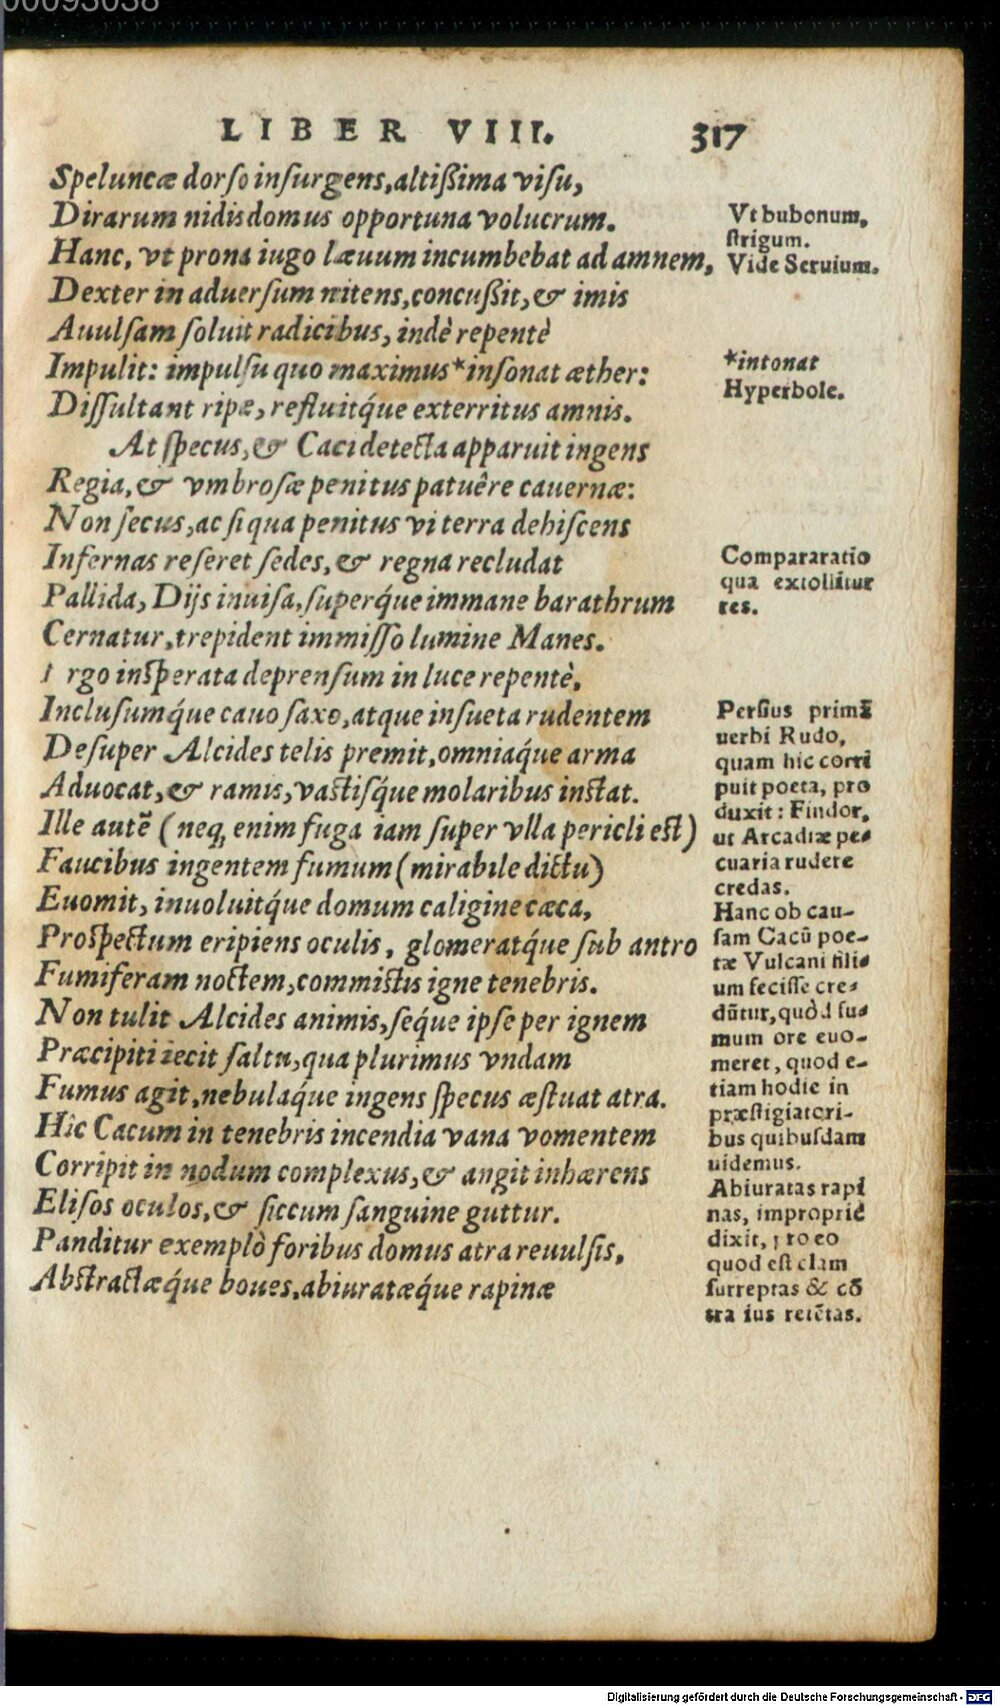 00093038
LIBER VIII. 317
Speluncæ dorso insurgens, altißima visu,
Dirarum nidis domus opportuna volucrum.
Hanc, vt prona iugo læuum incumbebat ad amnem,
Dexter in aduersum nitens, concußit, & imis
Auulsam soluit radicibus, indè repentè
Impulit: impulsu quo maximus *insonat æther:
Dissultant ripæ, refluitq́ue exterritus amnis.
At specus, & Caci detecta apparuit ingens
Regia, & vmbrosæ penitus patuêre cauernæ:
Non secus, ac si qua penitus vi terra dehiscens
Infernas reseret sedes, & regna recludat
Pallida, Dijs inuisa, superq́ue immane barathrum
Cernatur, trepident immisso lumine Manes.
rgo insperata deprensum in luce repentè,
Inclusumq́ue cauo saxo, atque insueta rudentem
Desuper Alcides telis premit, omniaq́ue arma
Aduocat, & ramis, vastisq́ue molaribus instat.
Ille autē (neq; enim fuga iam super vlla pericli est)
Faucibus ingentem fumum (mirabile dictu)
Euomit, inuoluitq́ue domum caligine cæca,
Prospectum eripiens oculis, glomeratq́ue sub antro
Fumiferam noctem, commistis igne tenebris.
Non tulit Alcides animis, seq́ue ipse per ignem
Præcipiti iecit saltu, qua plurimus vndam
Fumus agit, nebulaq́ue ingens specus æstuat atra.
Hîc Cacum in tenebris incendia vana vomentem
Corripit in nodum complexus, & angit inhærens
Elisos oculos, & siccum sanguine guttur.
Panditur exemplò foribus domus atra reuulsis,
Abstractæq́ue boues, abiuratæq́ue rapinæ
Vt bubonum,
strigum.
Vide Seruium.
*intonat
Hyperbole.
Compararatio
qua extollitur
res.
Persius primā
uerbi Rudo,
quam hic corri
puit poeta, pro
duxit: Findor,
ut Arcadiæ pe-
cuaria rudere
credas.
Hanc ob cau-
sam Cacū poe-
tæ Vulcani fili-
um fecisse cre-
dūtur, quòd fu-
mum ore euo-
meret, quod e-
tiam hodie in
præstigiatori-
bus quibusdam
uidemus.
Abiuratas rapi
nas, impropriè
dixit, pro eo
quod est clam
surreptas & cō
tra ius retētas.
Digitalisierung gefördert durch die Deutsche Forschungsgemeinschaft - DFG